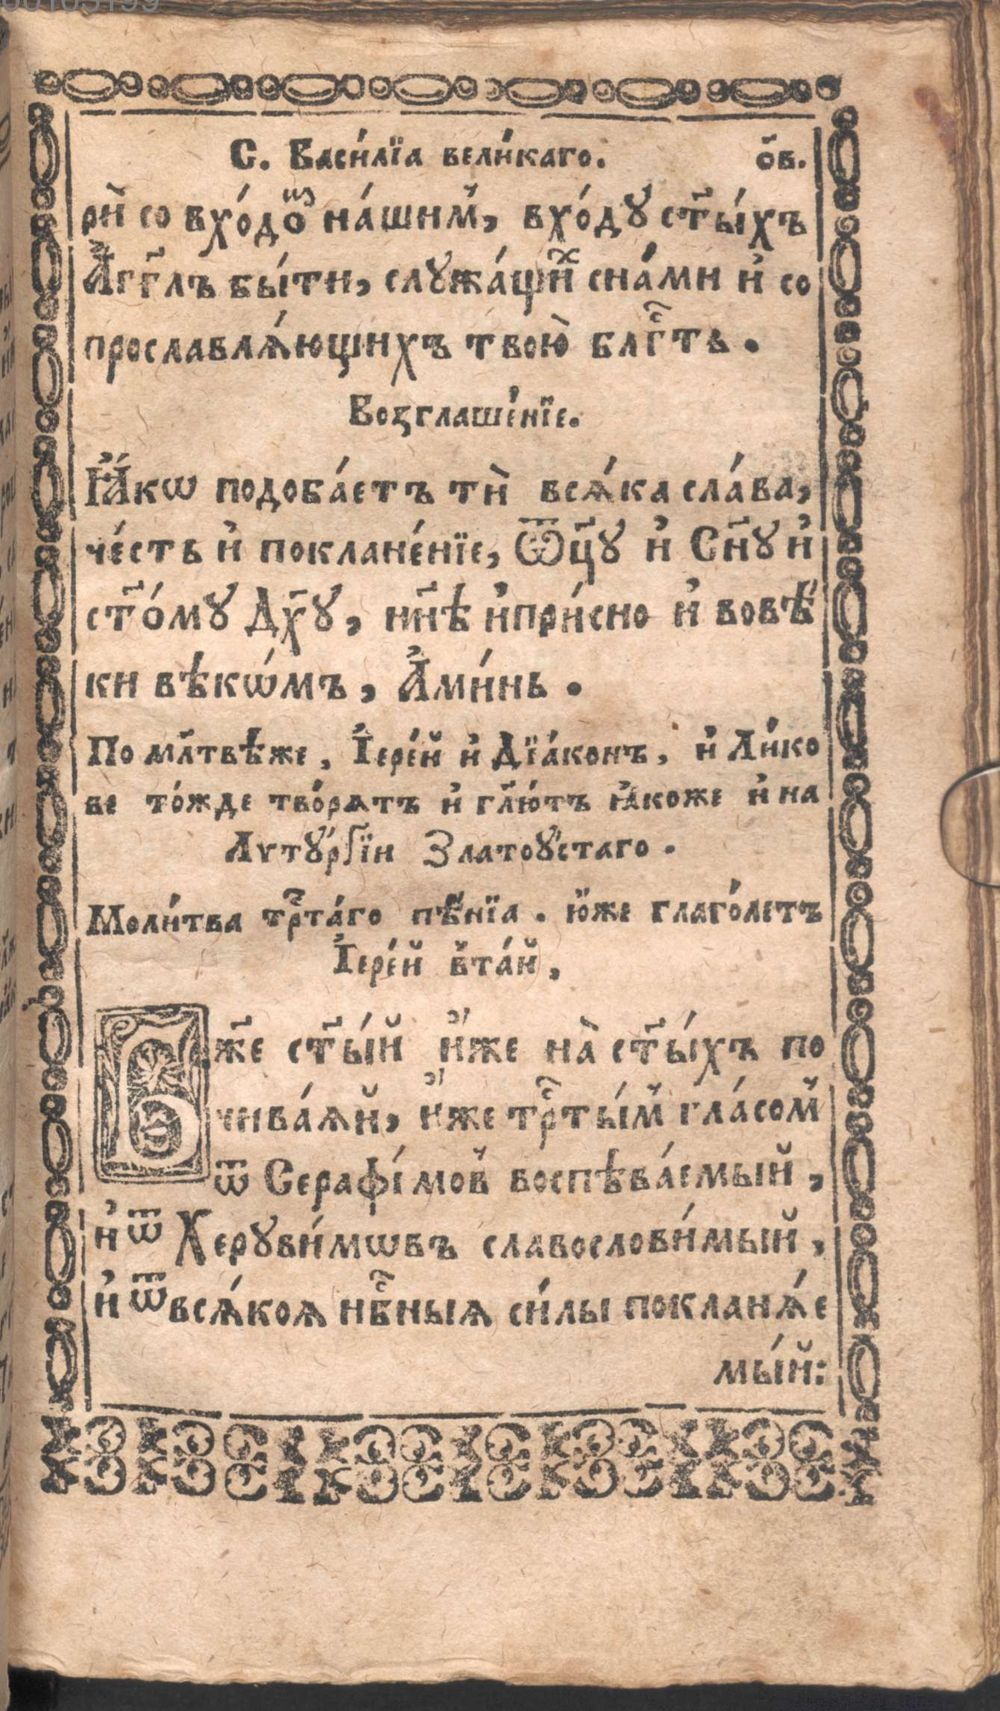 С. Васи́лїа вели́каго. о҃в.
рѝ со вхо́доⷨ на́шиⷨ, вхо́дꙋ ст҃ы́хъ
А҆́гг҃лъ бы́ти, слꙋжа́щиⷯ сна́ми и҆ со
прославлѧ́ющихъ твою̀ блгⷭ҇ть.
Возглаше́нїе.
Ꙗ҆́кѡ подоба́етъ тѝ всѧ́ка сла́ва,
че́сть и҆ поклане́нїе, Ѿц҃ꙋ и҆ Сн҃ꙋ и҆
ст҃о́мꙋ Дх҃ꙋ, нн҃ѣ и҆при́сно и҆ вовѣ́
ки вѣкѡ́мъ, А҆ми́нь.
По мл҃твѣже, І҆ере́й и҆ Дїа́конъ, и҆ Ли́ко
ве то́жде тво́рѧтъ и҆ гл҃ю́тъ ꙗ҆́коже и҆ на
Лѵтꙋрⸯгі́и Златоꙋ́стаго.
Моли́тва трⷭ҇та́го пѣ́нїа. ю҆́же глаго́летъ
І҆ере́й в̾та́й,
Бж҃е ст҃ы́й и҆́же на̀ ст҃ы́хъ по
чива́ѧй, и҆́же трⷭ҇ты́мⸯ гла́сомⸯ
ѿ Серафі́мовⸯ воспѣва́емый,
и҆ ѿ Херꙋви́мѡвъ славослови́мый,
и҆ ѿвсѧ́коѧ нбⷭ҇ныѧ си́лы покланѧ́е
мы́й: